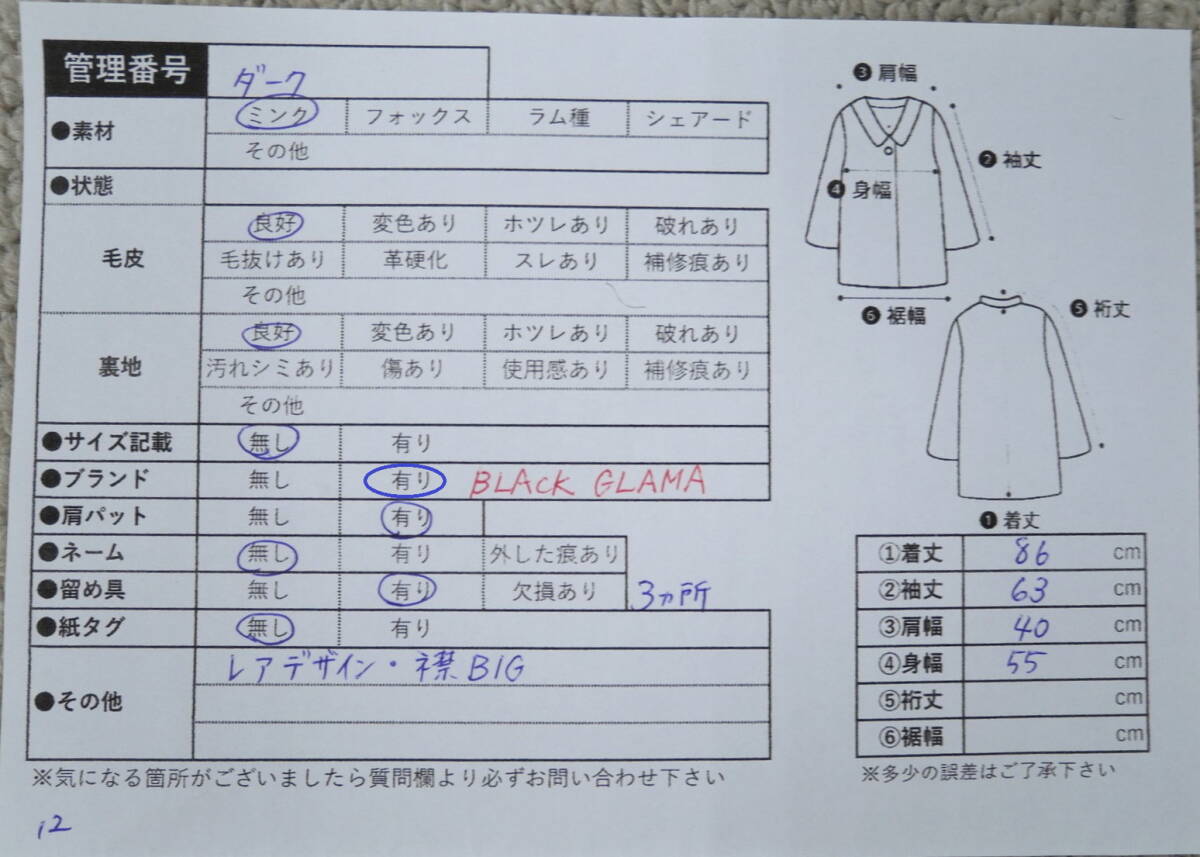 管理番号
ダーク
●素材 ミンク フォックス ラム種 シェアード
その他
●状態
毛皮 良好 変色あり ホツレあり 破れあり
毛抜けあり 革硬化 スレあり 補修痕あり
その他
裏地 良好 変色あり ホツレあり 破れあり
汚れシミあり 傷あり 使用感あり 補修痕あり
その他
●サイズ記載 無し 有り
●ブランド 無し 有り BLAcK GLAMA
●肩パット 無し 有り
●ネーム 無し 有り 外した痕あり
●留め具 無し 有り 欠損あり 3ヵ所
●紙タグ 無し 有り
●その他 レアデザイン・襟BIG
※気になる箇所がございましたら質問欄より必ずお問い合わせ下さい
12
❸ 肩幅
❷ 袖丈
❹ 身幅
❻ 裾幅
❺ 裄丈
❶ 着丈
①着丈 86 cm
②袖丈 63 cm
③肩幅 40 cm
④身幅 55 cm
⑤裄丈 cm
⑥裾幅 cm
※多少の誤差はご了承下さい